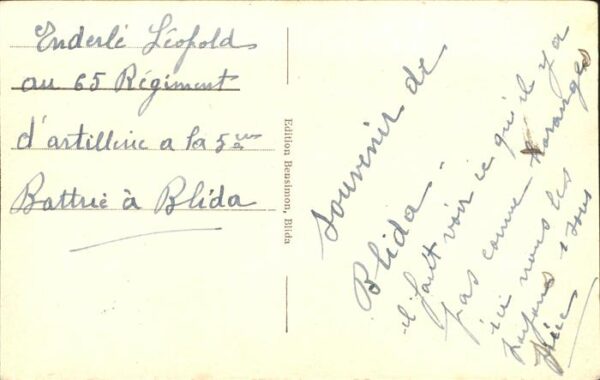 Enderlé Léopold
au 65 Régiment
d'artillerie a la 5
Battrie à Blida
Edition Bensimon, Blida
Souvenir de
Blida -
il faut voir ce qu'il y a
pas comme oranges
ici nous les
payons 1 sous